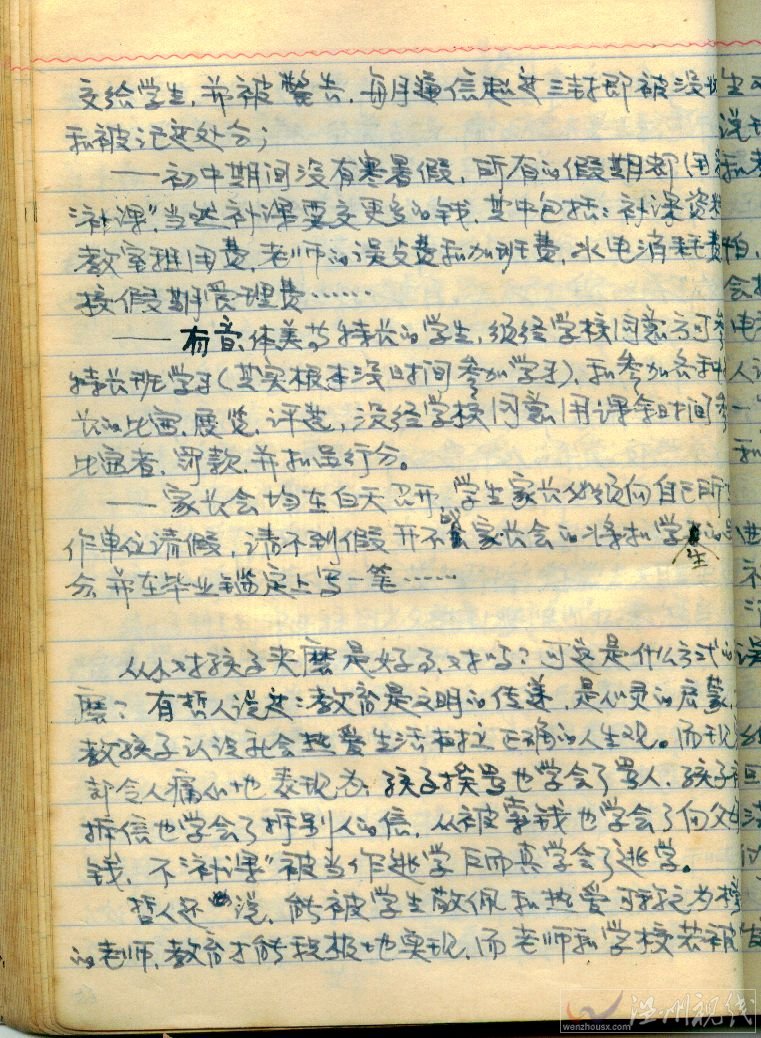 交给学生，并被警告，每月通信超过三封即被没收
和被记过处分；
——初中期间没有寒暑假，所有的假期都（用
“补课”，当然补课要交更多的钱，其中包括：补课资料
教室租用费，老师的误餐费和加班费，水电消耗费
校假期管理费……
——有音、体、美等特长的学生，须经学校同意方可参
特长班学习（其实根本没时间参加学习），和参加各种
长的比赛、展览、评选，没经学校同意用课余时间参
比赛者，罚款，并扣品行分。
——家长会均在白天召开，学生家长必须向自己所
作单位请假，请不到假开不家长会的将扣学生的
分，并在毕业鉴定上写一笔……
从小对孩子夹磨是好事，对吗？可这是什么方式的
磨？有哲人说过：教育是文明的传递，是心灵的启蒙，
教孩子认识社会热爱生活树立正确的人生观。而现
却令人痛心地表现为：孩子挨骂也学会了骂人，孩子被
拆信也学会了拆别人的信，从被索钱也学会了向父母
钱，不“补课”被当作逃学反而真学会了逃学。
哲人还说，能被学生敬佩和热爱可称之为
的老师，教育才能积极地实现，而老师和学校若被
温州视线
wenzhousx.com